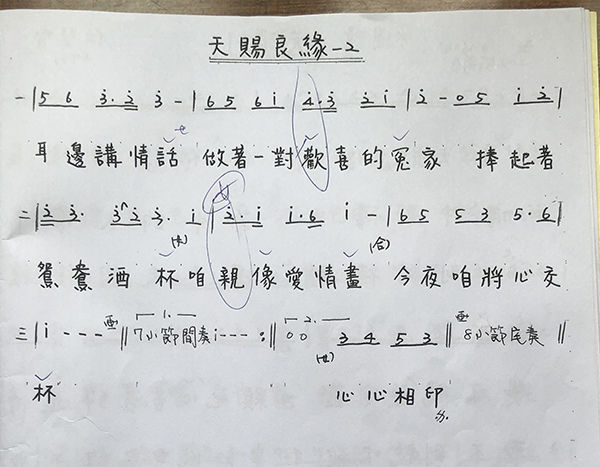 天賜良緣-2
一|5 6 3̇·2̇ 3̇ - |6 5 6 i 4̇·3̇ 2̇ i | 2̇ - 0 5 i 2̇|
耳邊講情話 做著一對歡喜的冤家 捧起著
二|2̇ 3̇· 3̇ 2̇ 3̇· i |2̇·i i·6 i - |6 5 5 3 5·6|
(女) (合)
鴛鴦酒 杯咱親像愛情畫 今夜咱將心交
三|i - - - ‖ 1. 7小節間奏 i - - - :‖ 2. 0 0 3 4 5 3 ‖ 8小節尾奏 ‖
杯 心心相印